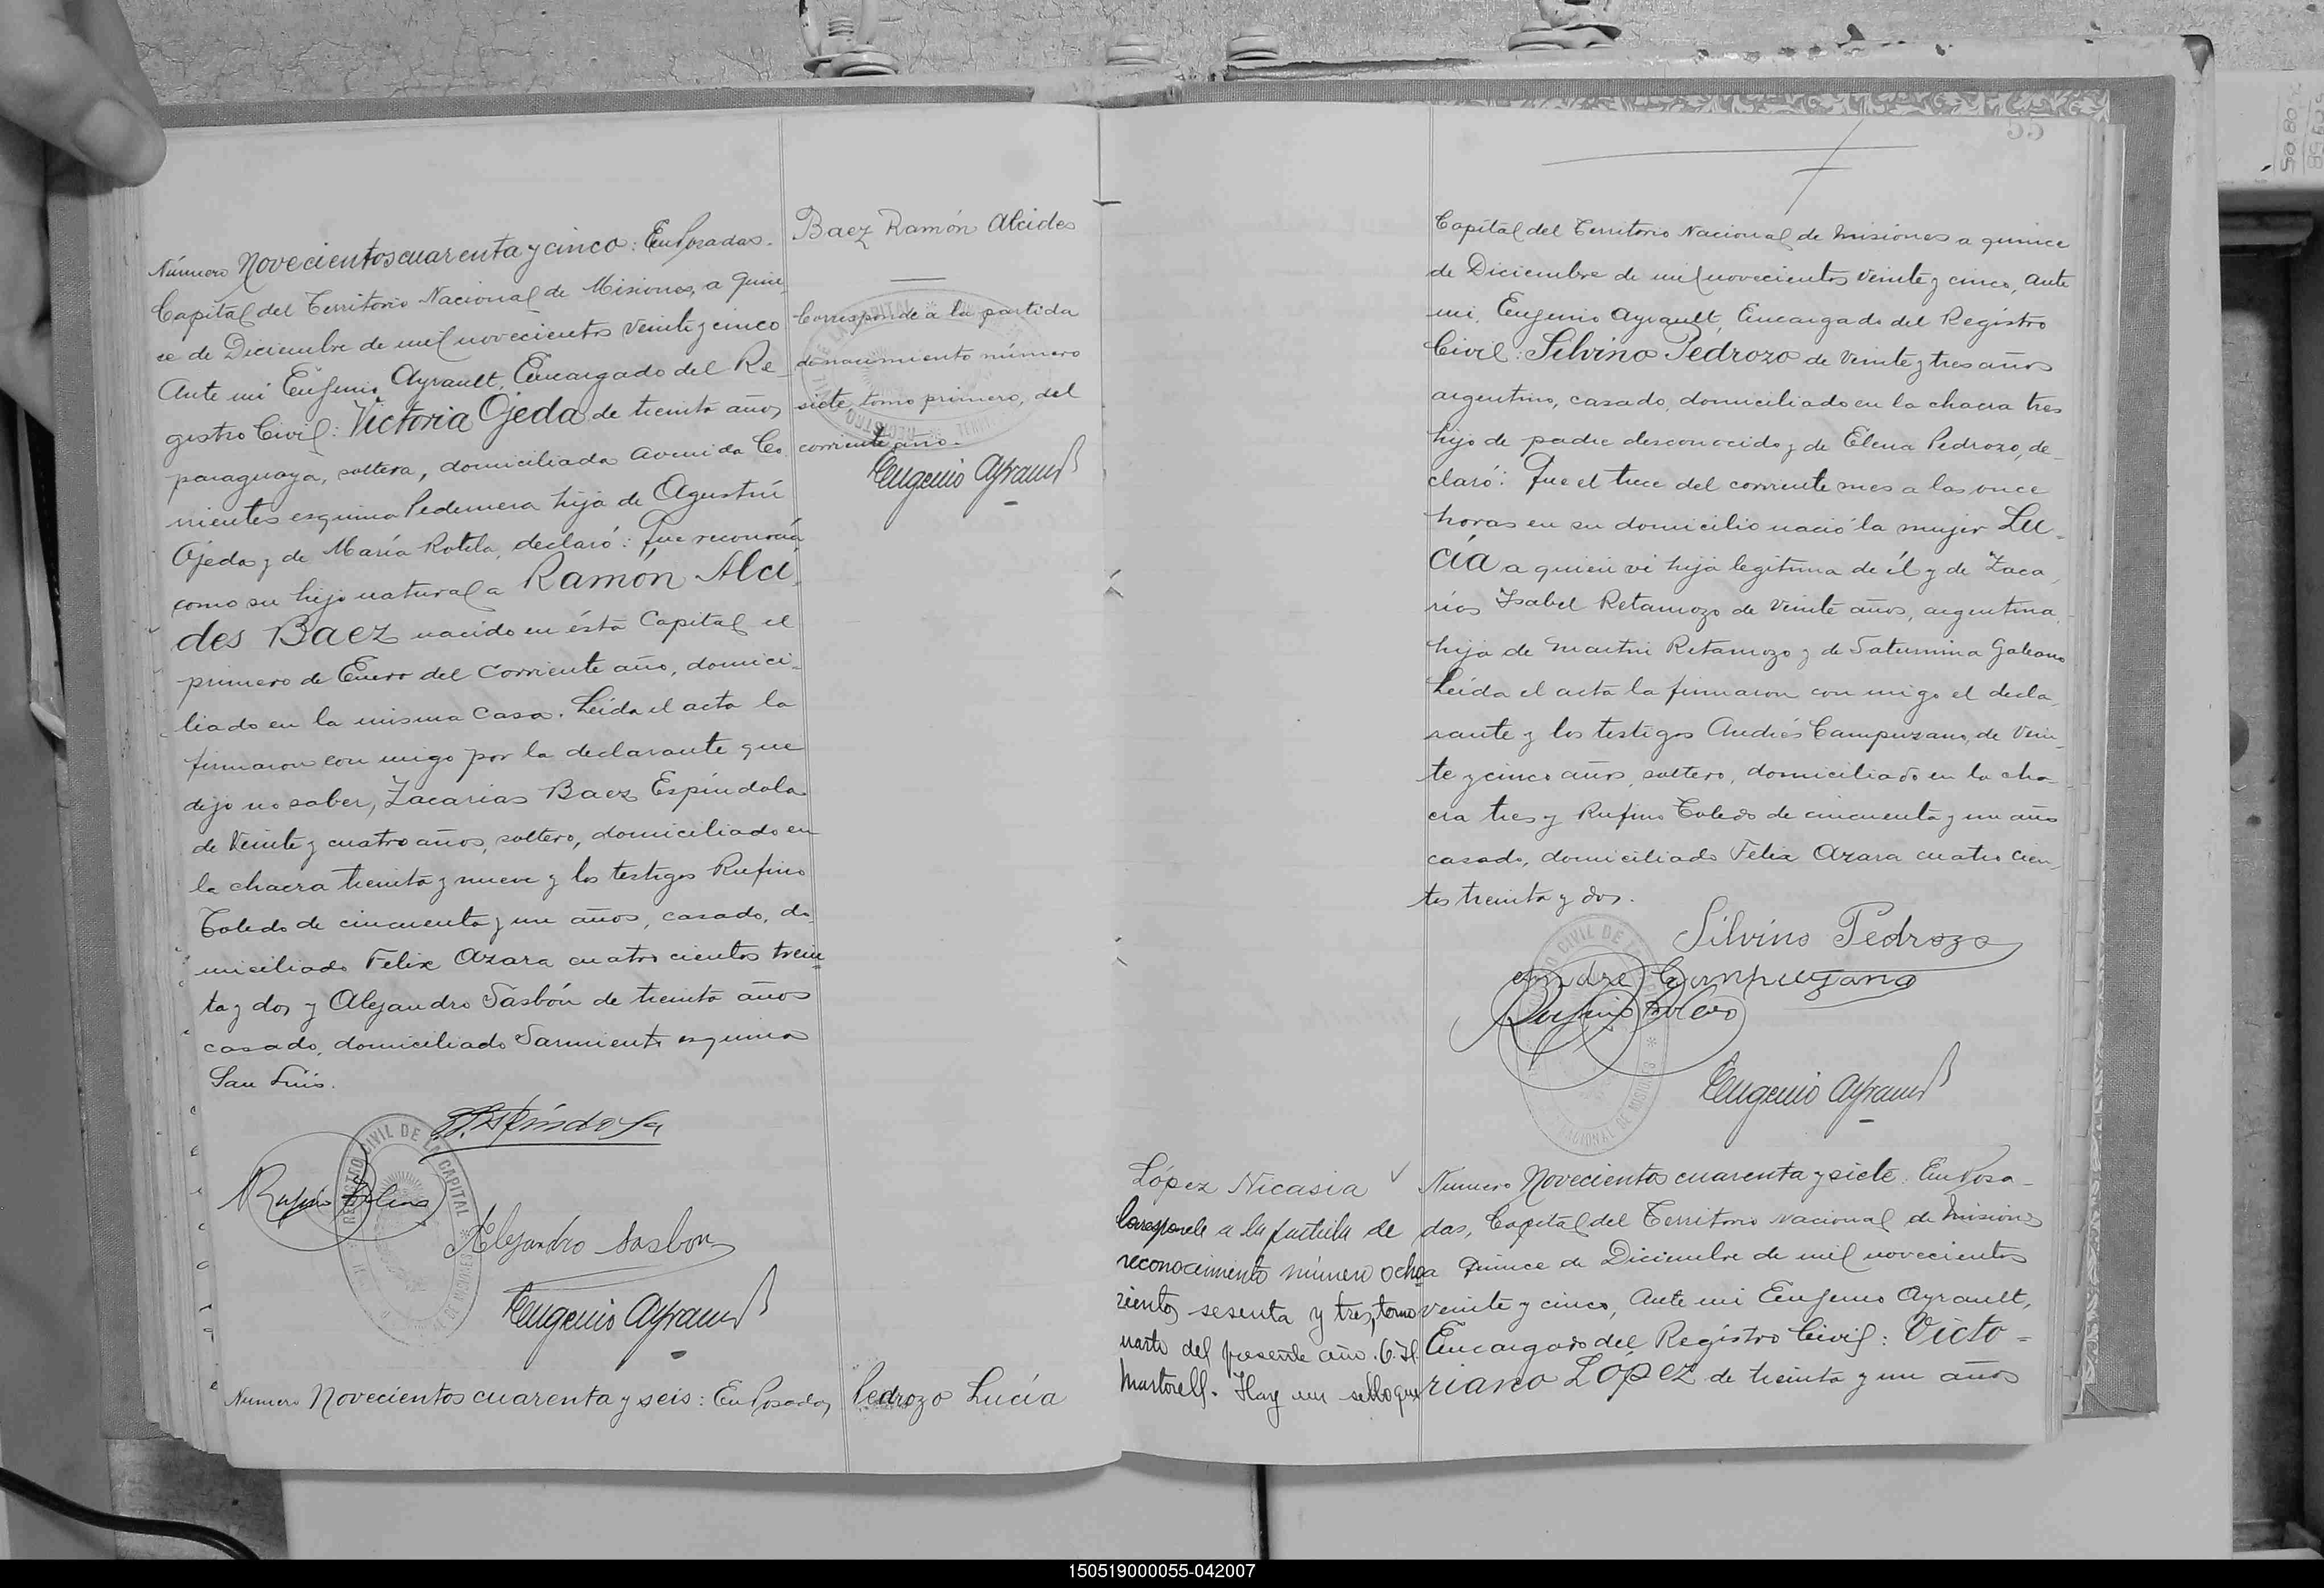 Número Novecientos cuarenta y cinco: En Posadas.
Capital del Territorio Nacional de Misiones, a quin
ce de Diciembre de mil novecientos veinte y cinco
Ante mi Eugenio Ayrault, Encargado del Re-
gistro Civil: Victoria Ojeda de treinta años
paraguaya, soltera, domiciliada Avenida Co
rrientes esquina Pedernera hija de Agustin
Ojeda y de María Rotela, declaró: Que reconocía
como su hijo natural a Ramón Alci
des Baez nacido en ésta Capital el
primero de Enero del corriente año, domici-
liado en la misma casa. Leida el acta la
firmaron con migo por la declarante que
dijo no saber, Zacarias Baez Espíndola
de veinte y cuatro años, soltero, domiciliado en
la chacra treinta y nueve y los testigos Rufino
Toledo de cincuenta y un años, casado, do
miciliado Felix Azara cuatro cientos trein
ta y dos y Alejandro Sasbón de treinta años
casado, domiciliado Sarmiento esquina
San Luis.
Espíndola
REGISTRO CIVIL DE LA CAPITAL
Rufino Toledo
Alejandro Sasbon
Eugenio Ayrault
Baez Ramón Alcides
Corresponde a la partida
de nacimiento número
siete, tomo primero, del
corriente año.
Eugenio Ayrault
Numero Novecientos cuarenta y seis: En Posadas,
Pedrozo Lucía
55
Capital del Territorio Nacional de Misiones a quince
de Diciembre de mil novecientos veinte y cinco, ante
mi, Eugenio Ayrault, Encargado del Registro
Civil: Silvino Pedrozo de veinte y tres años
argentino, casado, domiciliado en la chacra tres
hijo de padre desconocido y de Elena Pedrozo, de-
claró: Que el trece del corriente mes a las once
horas en su domicilio nació la mujer Lu-
cía a quien vi hija legitima de él y de Zaca
rías Isabel Retamozo de veinte años, argentina,
hija de Martin Retamozo y de Saturnina Galeano
Leida el acta la firmaron con migo el decla
rante y los testigos Andrés Campuzano, de vein-
te y cinco años, soltero, domiciliado en la cha
cra tres y Rufino Toledo de cincuenta y un años
casado, domiciliado Felix Azara cuatro cien
tos treinta y dos.
Silvino Pedrozo
Andre Campuzano
Rufino Toledo
Eugenio Ayrault
López Nicasia
Corresponde a la partida de
reconocimiento número ocho
cientos sesenta y tres, tomo
cuarto del presente año. C. H.
Martorell. Hay un sello que
Numero Novecientos cuarenta y siete: En Posa-
das, Capital del Territorio Nacional de Misiones
a quince de Diciembre de mil novecientos
veinte y cinco, Ante mi Eugenio Ayrault,
Encargado del Registro Civil: Victo=
riano López de treinta y un años
150519000055-042007